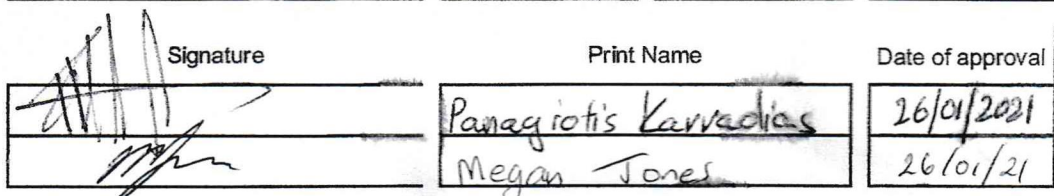 Signature Print Name Date of approval
Panagiotis Karvadias 26/01/2021
Megan Jones 26/01/21